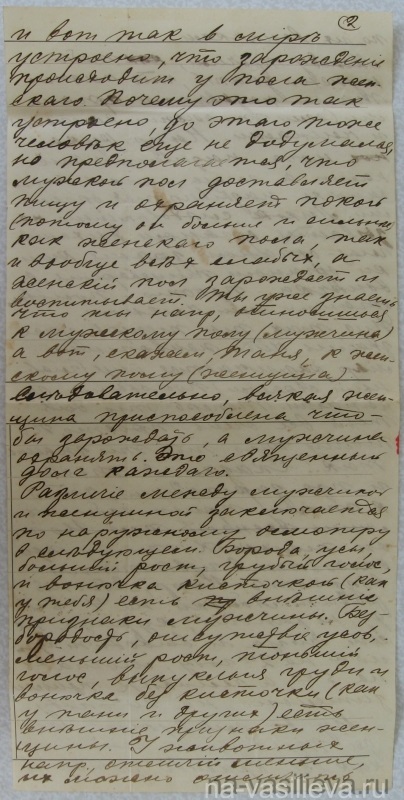 2
и вот так в мірѣ
устроено, что зарожденіе
происходит у пола жен-
скаго. Почему это так
устроено, до этаго тоже
человѣк еще не додумался,
но предполагается, что
мужской пол доставляет
пищу и охраняет покой
(потому он больше и сильнѣе
как женскаго пола, так
и вообще всѣх слабых, а
женскій пол зарождает и
воспитывает. Ты уже знаешь
что ты напр. относишься
к мужскому полу (мужчина)
а вот, скажем, Таня, к жен-
скому полу (женщина)
слѣдовательно, всякая жен-
щина приспособлена что-
бы зарождать, а мужчина
охранять. Это священный
долг каждаго.
Различіе между мужчиной
и женщиной заключается
по наружному осмотру
в слѣдующем. Борода, усы,
большій рост, грубый голос,
и вонючка кисточкой (как
у тебя) есть внѣшніе
признаки мужчины. Без-
бородость, отсутствіе усов,
меньшій рост, тоньшій
голос, выпуклыя груди и
вонючка без кисточки (как
у тани и других) есть
внѣшніе признаки жен-
щины. У животных
напр.
их можно
na-vasilieva.ru